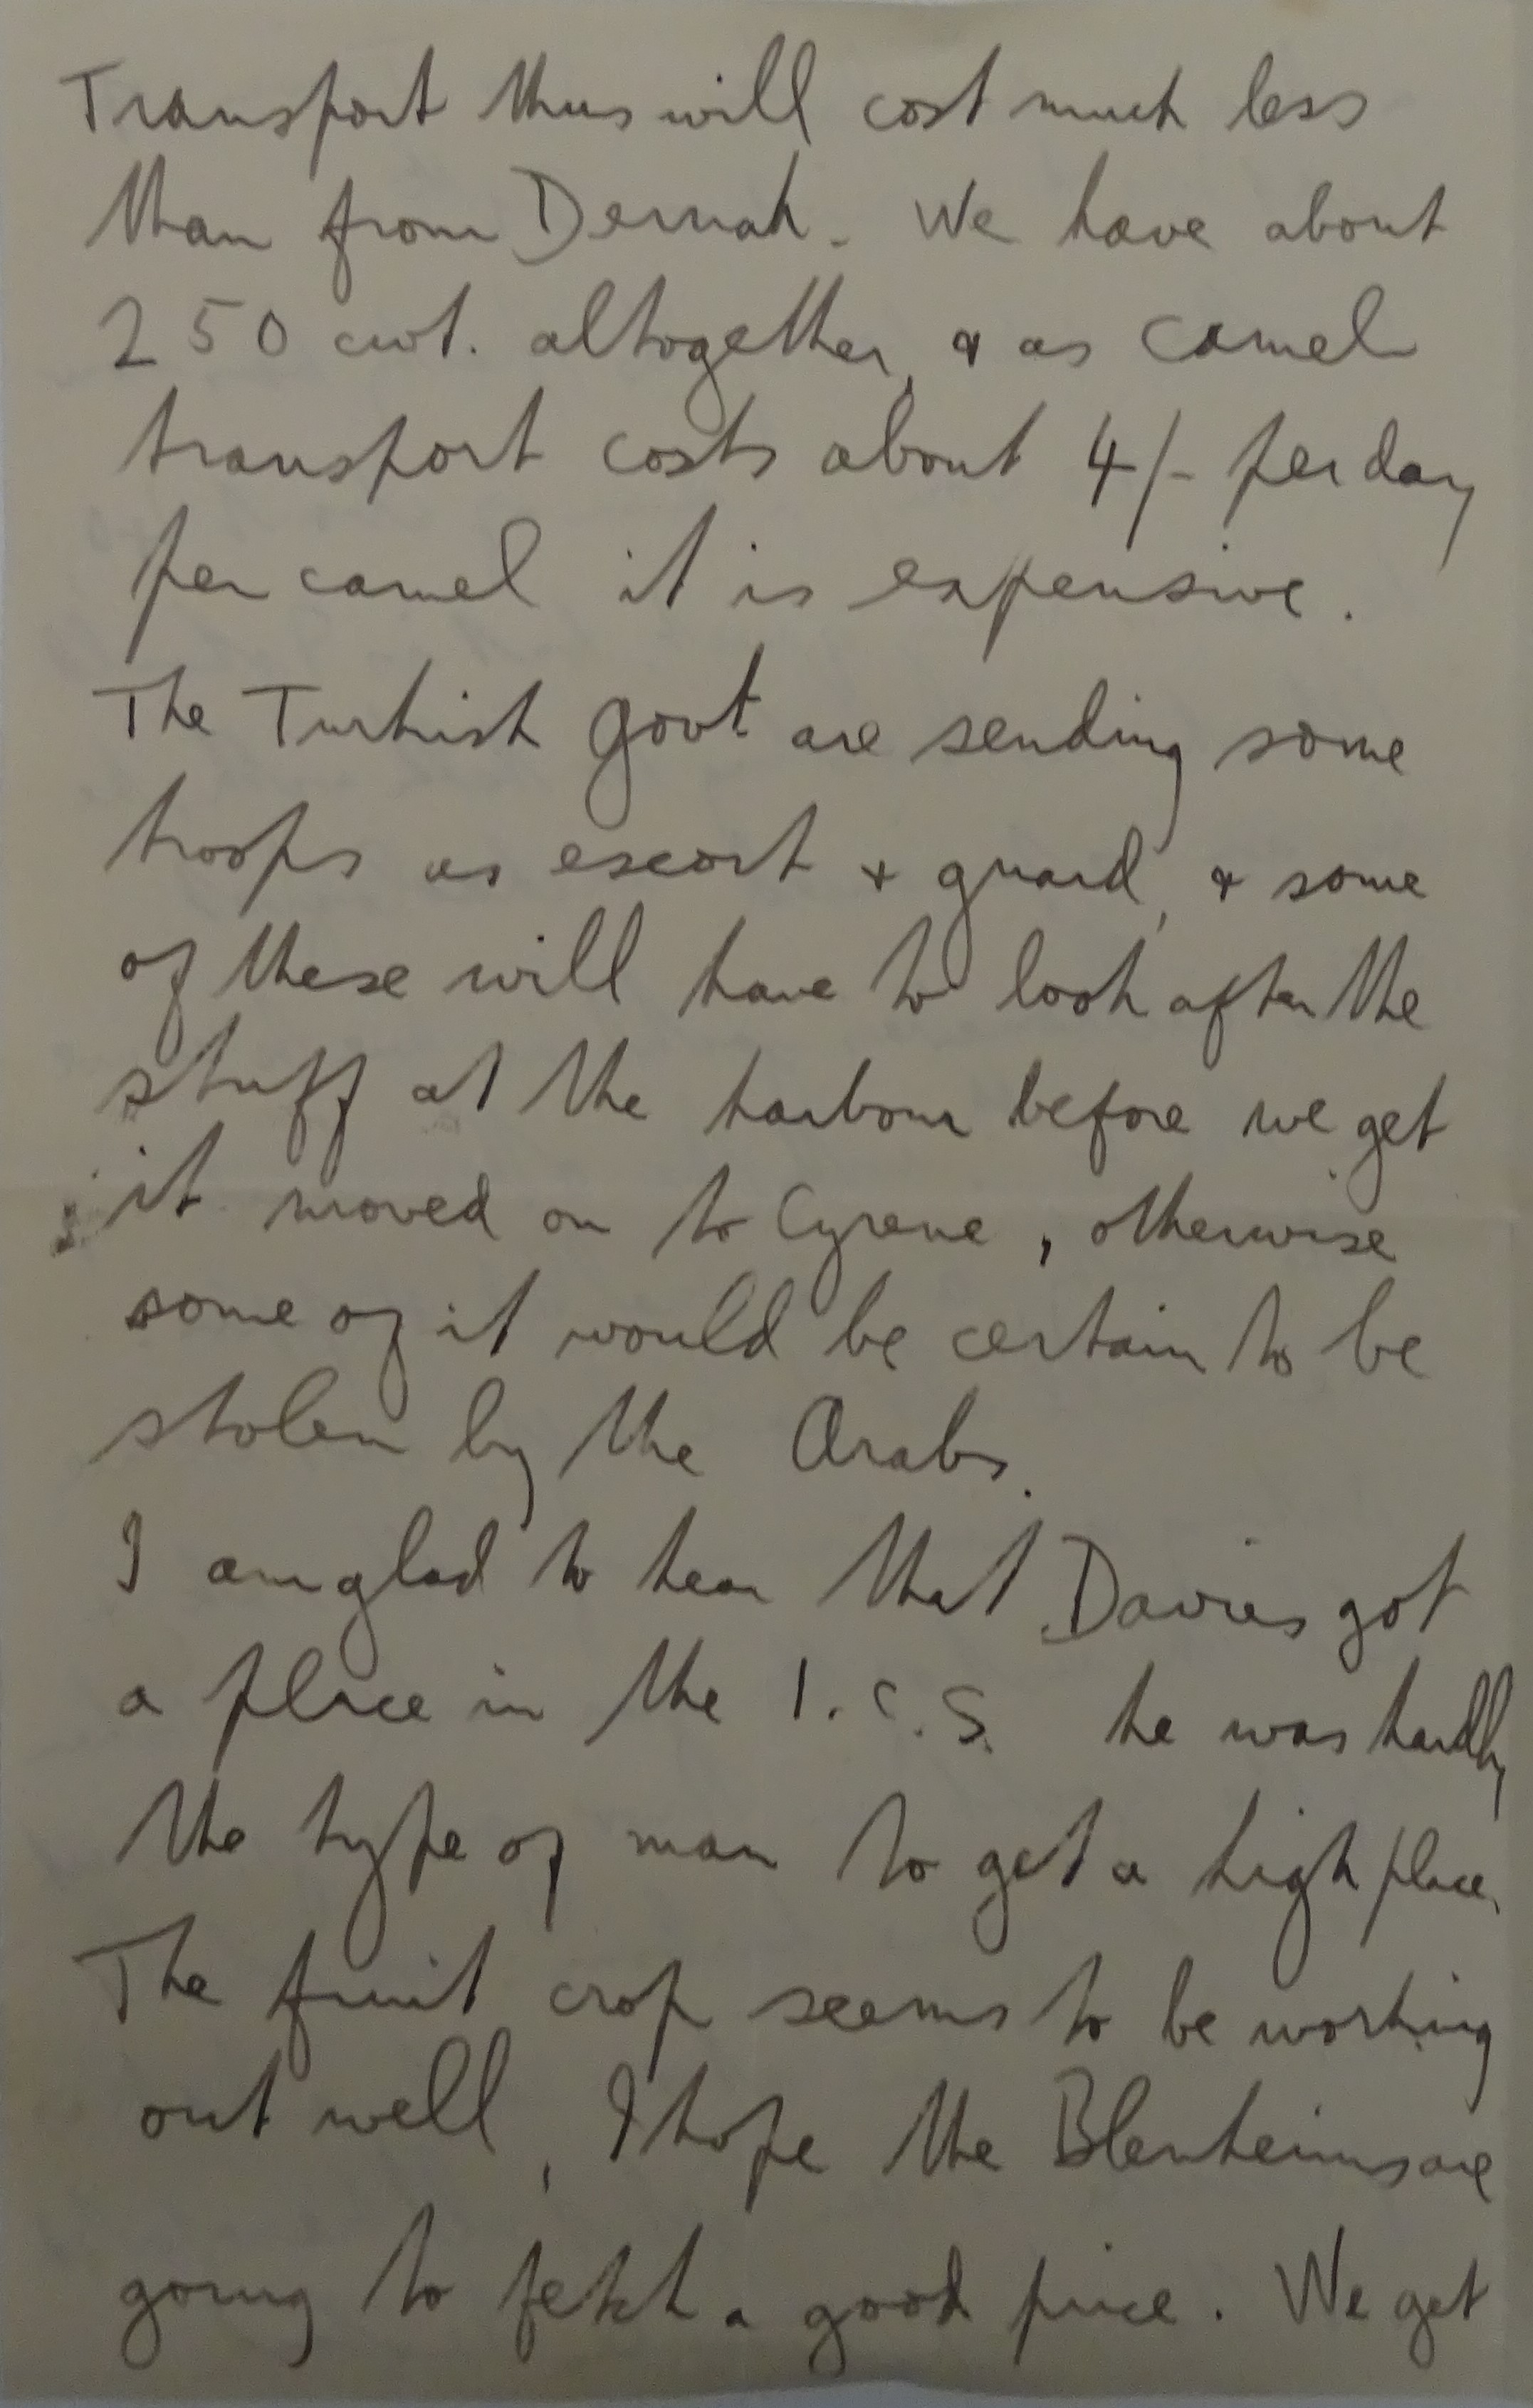 Transport thus will cost much less
than from Dernah. We have about
250 cwt. altogether, & as camel
transport costs about 4/- per day
per camel it is expensive.
The Turkish govt are sending some
troops as escort & guard, & some
of these will have to look after the
stuff at the harbour before we get
it moved on to Cyrene, otherwise
some of it would be certain to be
stolen by the Arabs.
I am glad to hear that Davies got
a place in the I.C.S. he was hardly
the type of man to get a high place.
The fruit crop seems to be working
out well, I hope the Blenheims are
going to fetch a good price. We get